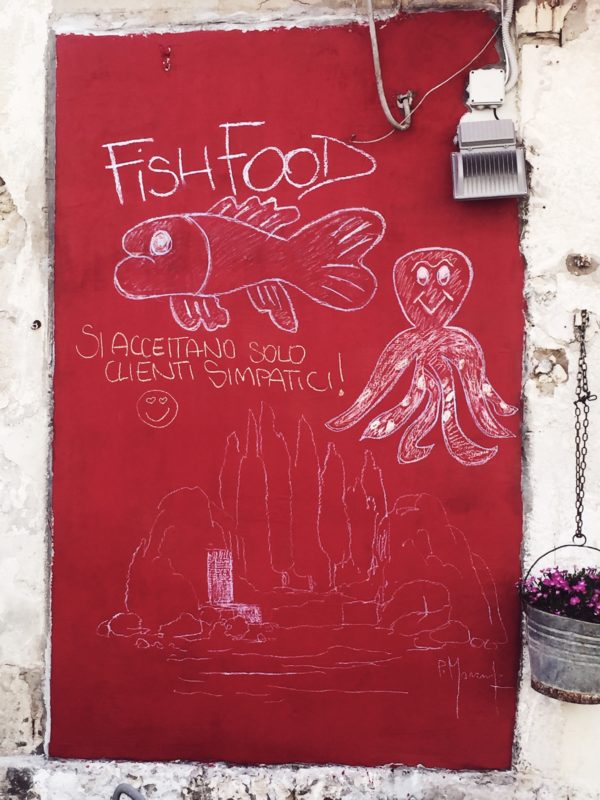 FISH FOOD
SI ACCETTANO SOLO
CLIENTI SIMPATICI!